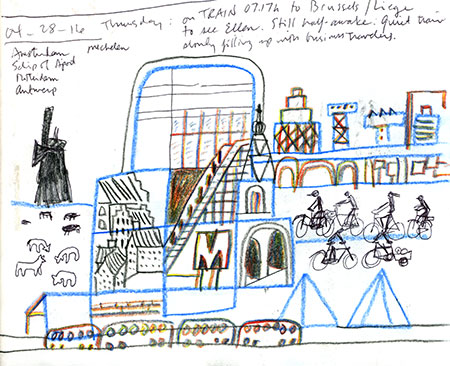 04-28-16 Thursday: on TRAIN 07.17h to Brussels / Liege
to see Ellen. Still half-awake. Quiet train
slowly filling up with business travelers.
Amsterdam
Mechelen
Schiphol Airport
Rotterdam
Antwerp
M